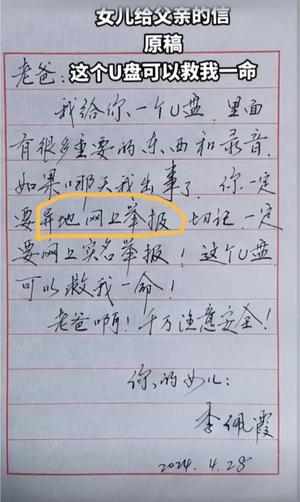 女儿给父亲的信
原稿
这个U盘可以救我一命
老爸：
我给你一个U盘，里面
有很多重要的东西和录音，
如果哪天我出事了，你一定
要异地网上举报，切记，一定
要网上实名举报！这个U盘
可以救我一命！
老爸啊！千万注意安全！
你的女儿：
李佩霞
2024.4.28